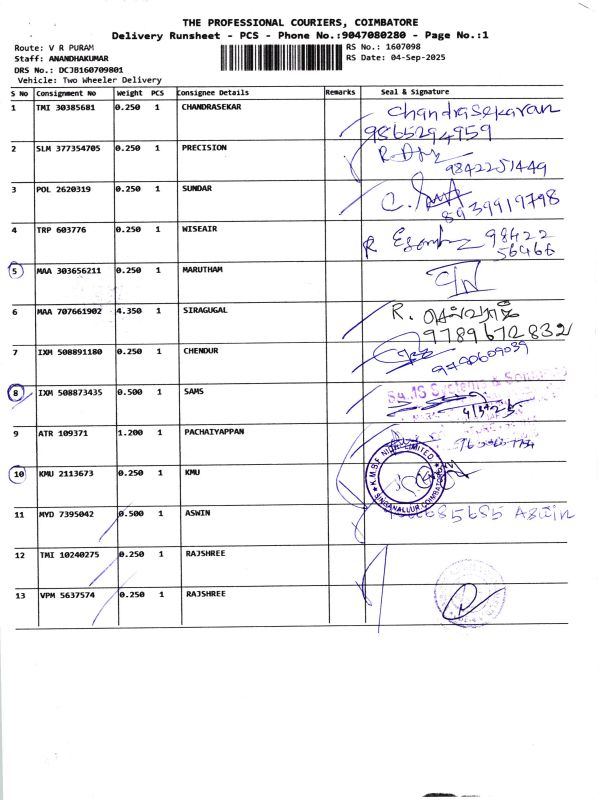 THE PROFESSIONAL COURIERS, COIMBATORE
Delivery Runsheet - PCS - Phone No.:9047080280 - Page No.:1
Route: V R PURAM
RS No.: 1607098
Staff: ANANDHAKUMAR
RS Date: 04-Sep-2025
DRS No.: DCJB160709801
Vehicle: Two Wheeler Delivery
S No Consignment No Weight PCS Consignee Details Remarks Seal & Signature
1 TMI 30385681 0.250 1 CHANDRASEKAR Chandrasekaran
9865294959
2 SLM 377354705 0.250 1 PRECISION
9842251449
3 POL 2620319 0.250 1 SUNDAR
8939919798
4 TRP 603776 0.250 1 WISEAIR R 98422
56466
5 MAA 303656211 0.250 1 MARUTHAM
6 MAA 707661902 4.350 1 SIRAGUGAL R.
9789672832
7 IXM 508891180 0.250 1 CHENDUR
8 IXM 508873435 0.500 1 SAMS
9 ATR 109371 1.200 1 PACHAIYAPPAN
10 KMU 2113673 0.250 1 KMU K.M.B.F. NIDHI LIMITED
SINGANALLUR COIMBATORE
11 MYD 7395042 0.500 1 ASWIN Aswin
12 TMI 10240275 0.250 1 RAJSHREE
13 VPM 5637574 0.250 1 RAJSHREE